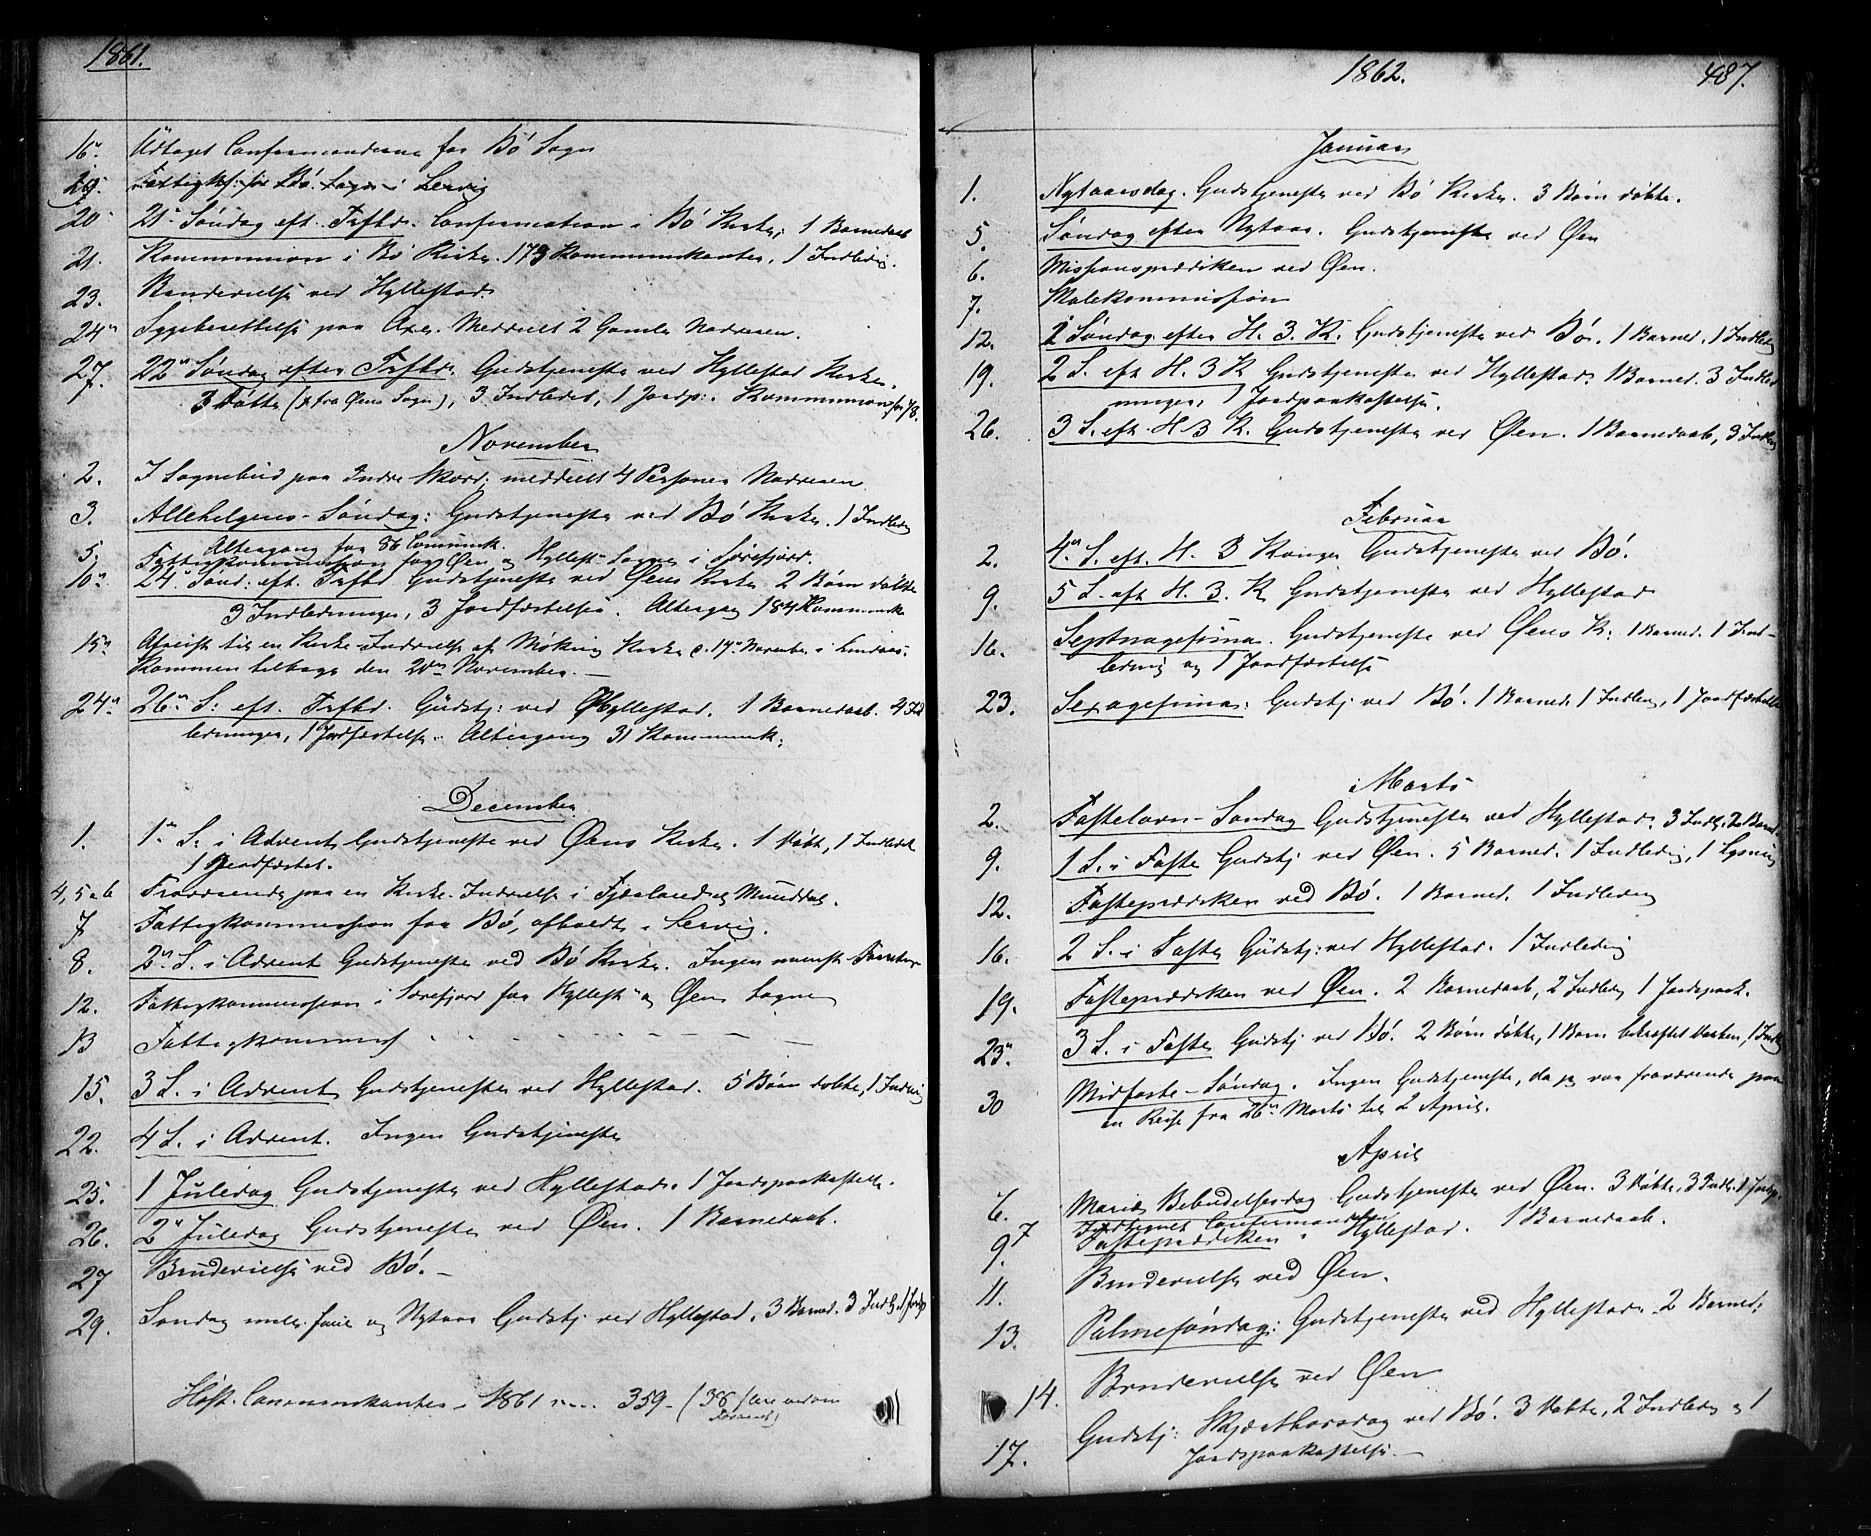 1861.
16de. Udtaget Confirmanderne for Bø Sogn
29. Fattigk: for Bø Sogn i Lervig
20 21de Søndag eft. Trfbd. Confirmation i Bø Kirke, 1 Barnedaab
21. Kommunion i Bø Kirke. 173 Kommunikanter, 1 Indledng.
23. Brudevielse ved Hyllestad.
24de Sygeberettelse paa Meddeelt 2 Gamle Nadveren.
27. 22de Søndag efter Trfbd. Gudstjeneste ved Hyllestad Kirke.
3 Døbte (1 fra Øens Sogn), 3 Indledet, 1 Jordp: Kommunion for 78.
November
2. I Sognebud paa Indre meddeelt 4 Personer Nadveren.
3. Allehelgens-Søndag: Gudstjeneste ved Bø Kirke. 1 Indledng
Altergang for 86 Communik.
5. Fattigkommission for Øen og Hyllest. Sogne i Sørefjord.
10de 24 Sønd. eft. Trfbd Gudstjeneste ved Øens Kirke 2 Børn døbte
3 Indledninger, 3 Jordfæstelse. Altergang 184 Kommunik
15de Afreist til en Kirke-Indvielse af Kirke d. 17de November i Lindaas.
Kommen tilbage den 20de November. —
24de 26de S: eft. Trfbd. Gudstj: ved Hyllestad. 1 Barnedaab. 4 Ind
ledninger, 1 Jordfæstelse. Altergang 31 Kommunik:
December
1. 1de S. i Advent, Gudstjeneste ved Øens Kirke. 1 Døbt, 1 Indledet
1 Jordfæstet.
4, 5 a 6 Fraværende paa en Kirke-Indvielse i Fjærland og Mundal.
7 Fattigkommission for Bø, afholdt i Lervig.
8. 2de S. i Advent Gudstjeneste ved Bø Kirke. Ingen
12. Fattigkommission i Sørefjord for Hyllest og Øens Sogne
13 Fattigkommiss — — — —
15. 3 S. i Advent, Gudstjeneste ved Hyllestad. 5 Børn døbte, 1 Indledng
22. 4 S. i Advent. Ingen Gudstjeneste
25. 1 Juledag Gudstjeneste ved Hyllestad. 1 Jordpaakastelse.
26. 2de Juledag Gudstjeneste ved Øen. 1 Barnedaab.
27 Brudevielse ved Bø. —
29. Søndag mell. Juul og Nytaar Gudstj ved Hyllestad. 3 Barned. 3 Indl. 1 Jordp
Høst-Communikanter 1861 .... 359 — (38 flere end i
1862. 487.
Januar
1. Nytaarsdag. Gudstjeneste ved Bø Kirke. 3 Børn døbte.
5. Søndag efter Nytaar. Gudstjeneste ved Øen
6. Missionsprædiken ved Øen.
7. Skolekommission
12. 1 Søndag efter H. 3. K. Gudstjeneste ved Bø. 1 Barned. 1 Indledng
19. 2 S. eft H. 3 K Gudstjeneste ved Hyllestad. 1 Barned. 3 Indled
ninger, 1 Jordpaakastelse.
26. 3 S. eft. H 3 K. Gudstjeneste ved Øen. 1 Barnedaab, 3 Indledng
Februar
2. 4de S. eft. H. 3 Konger Gudstjeneste ved Bø.
9. 5 S. eft H. 3. K Gudstjeneste ved Hyllestad
16. Septuagesima. Gudstjeneste ved Øens K. 1 Barned. 1 Ind-
ledning og 1 Jordfæstelse
23. Sexagesima: Gudstj ved Bø. 1 Barned. 1 Indledng, 1 Jordfæstelse
Marts
2. Fastelavn-Søndag Gudstjeneste ved Hyllestad. 3 Indl. 2 Barned.
9. 1 S. i Faste Gudstj ved Øen. 5 Barned. 1 Indledng, 1 Lysning
12. Fasteprædiken ved Bø. 1 Barned. 1 Indledng
16. 2 S. i Faste Gudstj: ved Hyllestad. 1 Indledng
19. Fasteprædiken ved Øen. 2 Barnedaab, 2 Indledng 1 Jordspaak.
23de 3 S. i Faste Gudstj ved Bø. 2 Børn døbte, 1 Barn bekræftet Daaben, 1 Indledng
30 Midfaste-Søndag. Ingen Gudstjeneste, da jeg var fraværende paa
en Reise fra 26de Marts til 2 April.
April
6. Mariæ Bebudelsesdag Gudstjeneste ved Øen. 3 Døbte, 3 Indl. 1 Jordp.
7 Confirmander
9. Fasteprædiken i Hyllestad. 1 Barnedaab.
11. Brudevielse ved Øen.
13. Palmesøndag: Gudstjeneste ved Hyllestad. 2 Barned:
14. Brudevielse ved Øen
17. Gudstj: Skjærthorsdag ved Bø. 3 Døbte, 2 Indledng og 1
Jordspaakastelse. —